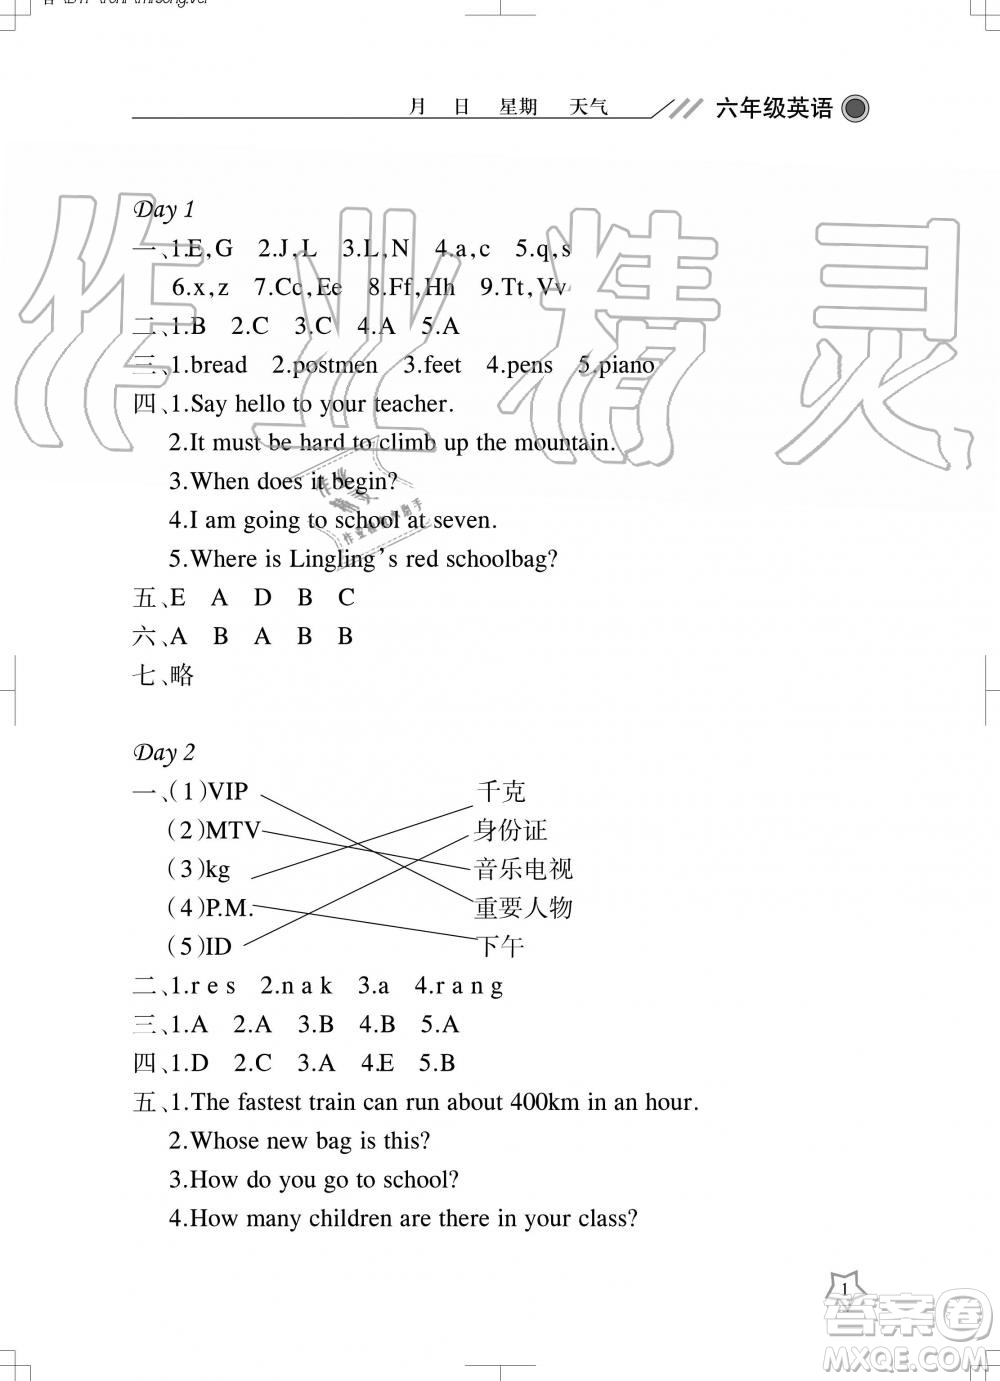 月 日 星期 天气 六年级英语
Day 1
一、1.E,G 2.J,L 3.L,N 4.a,c 5.q,s
6.x,z 7.Cc,Ee 8.Ff,Hh 9.Tt,Vv
二、1.B 2.C 3.C 4.A 5.A
三、1.bread 2.postmen 3.feet 4.pens 5.piano
四、1.Say hello to your teacher.
2.It must be hard to climb up the mountain.
3.When does it begin?
4.I am going to school at seven.
5.Where is Lingling's red schoolbag?
五、E A D B C
六、A B A B B
七、略
作业精灵
Day 2
一、(1)VIP 千克
(2)MTV 身份证
(3)kg 音乐电视
(4)P.M. 重要人物
(5)ID 下午
二、1.r e s 2.n a k 3.a 4.r a n g
三、1.A 2.A 3.B 4.B 5.A
四、1.D 2.C 3.A 4.E 5.B
五、1.The fastest train can run about 400km in an hour.
2.Whose new bag is this?
3.How do you go to school?
4.How many children are there in your class?
1
答案卷
MXQE.COM